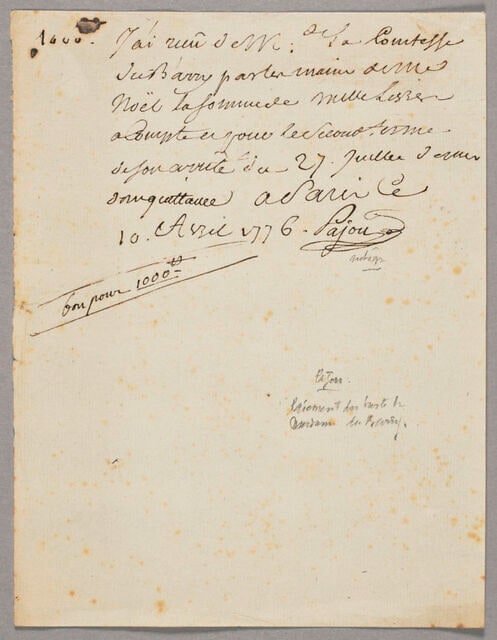 1000.
J'ai recu de M.e La Comtesse
du Barry par les mains de Me
Noël la somme de mille Livres
a compte et pour le second terme
de son arreté du 27. Juillet dernier
dont quittance a Paris Ce
10. Avril 1776. Pajou
bon pour 1000tt
Pajou.
Paiement du buste de
Madame du Barry.